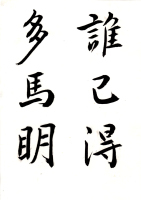 誰已得
多馬明